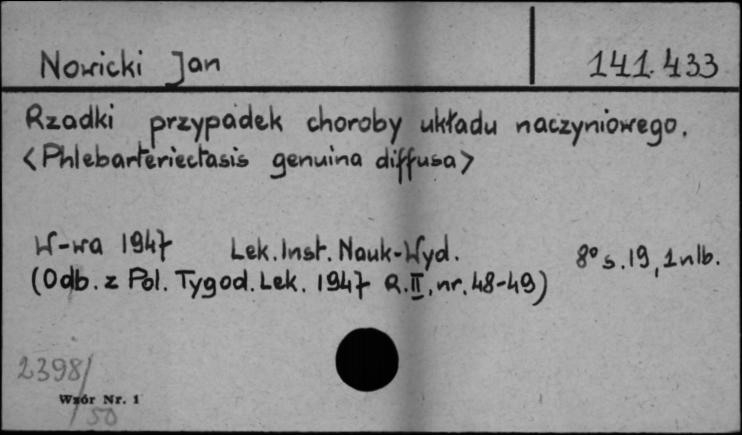 Nowicki Jan 141.433
Rzadki przypadek choroby układu naczyniowego.
<Phlebarteriectasis genuina diffusa>
W-wa 1947 Lek. Inst. Nauk-Wyd. 8° s. 19, 1 nlb.
(Odb. z Pol. Tygod. Lek. 1947 R. II, nr. 48-49)
2398/
Wzór Nr. 1
50